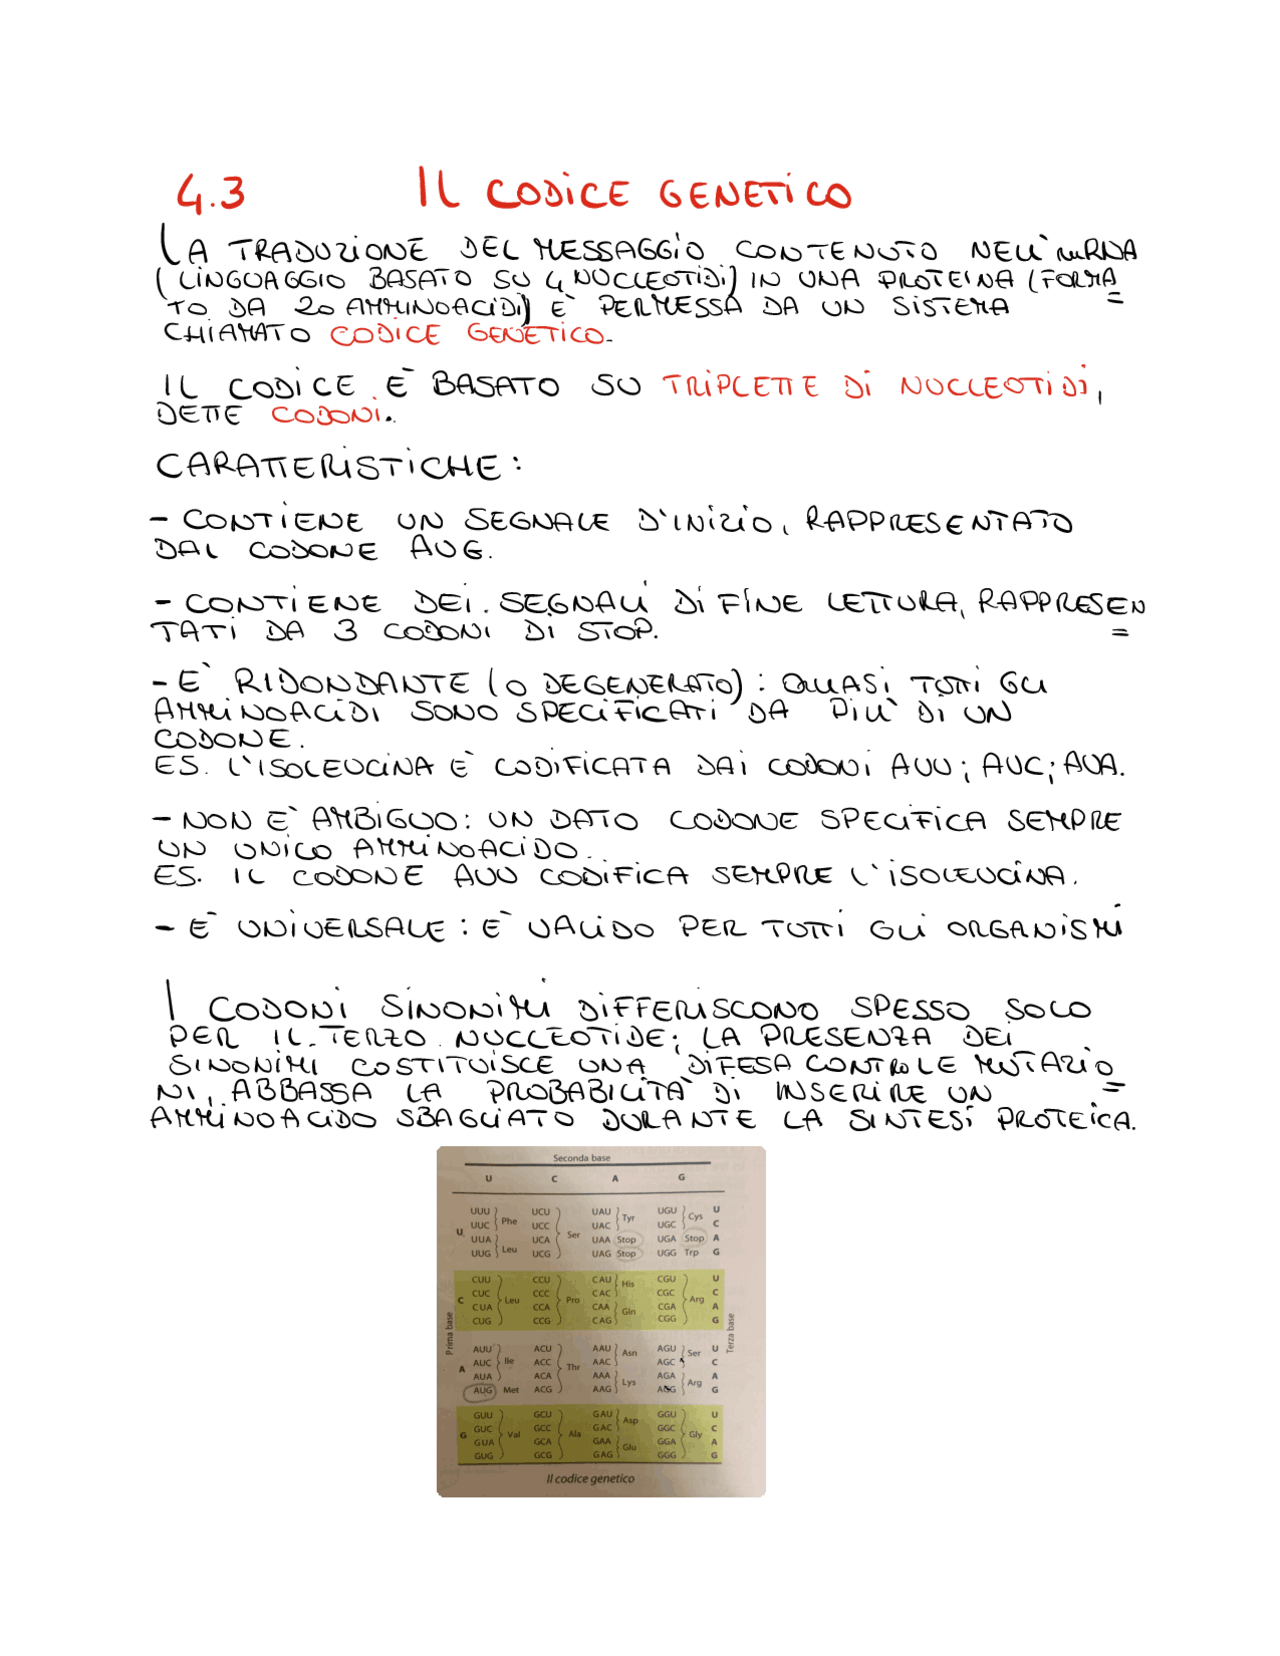 4.3 IL CODICE GENETICO
LA TRADUZIONE DEL MESSAGGIO CONTENUTO NELL'mRNA
(LINGUAGGIO BASATO SU 4 NUCLEOTIDI) IN UNA PROTEINA (FORMA=
TO DA 20 AMMINOACIDI) E' PERMESSA DA UN SISTEMA
CHIAMATO CODICE GENETICO.
IL CODICE E' BASATO SU TRIPLETTE DI NUCLEOTIDI,
DETTE CODONI.
CARATTERISTICHE:
- CONTIENE UN SEGNALE D'INIZIO, RAPPRESENTATO
DAL CODONE AUG.
- CONTIENE DEI SEGNALI DI FINE LETTURA, RAPPRESEN=
TATI DA 3 CODONI DI STOP.
- E' RIDONDANTE (O DEGENERATO): QUASI TUTTI GLI
AMMINOACIDI SONO SPECIFICATI DA PIU' DI UN
CODONE.
ES. L'ISOLEUCINA E' CODIFICATA DAI CODONI AUU; AUC; AUA.
- NON E' AMBIGUO: UN DATO CODONE SPECIFICA SEMPRE
UN UNICO AMMINOACIDO.
ES. IL CODONE AUU CODIFICA SEMPRE L'ISOLEUCINA.
- E' UNIVERSALE: E' VALIDO PER TUTTI GLI ORGANISMI
I CODONI SINONIMI DIFFERISCONO SPESSO SOLO
PER IL TERZO NUCLEOTIDE; LA PRESENZA DEI
SINONIMI COSTITUISCE UNA DIFESA CONTRO LE MUTAZIO=
NI, ABBASSA LA PROBABILITA' DI INSERIRE UN
AMMINOACIDO SBAGLIATO DURANTE LA SINTESI PROTEICA.
Seconda base
U C A G
UUU UCU UAU UGU U
Phe Tyr Cys
UUC UCC UAC UGC C
U Ser
UUA UCA UAA Stop UGA Stop A
Leu
UUG UCG UAG Stop UGG Trp G
CUU CCU CAU CGU U
His
CUC CCC CAC CGC C
C Leu Pro Arg
CUA CCA CAA CGA A
Gln
CUG CCG CAG CGG G
Prima base
Terza base
AUU ACU AAU AGU U
Asn Ser
AUC Ile ACC AAC AGC C
A Thr
AUA ACA AAA AGA A
Lys Arg
AUG Met ACG AAG AGG G
GUU GCU GAU GGU U
Asp
GUC GCC GAC GGC C
G Val Ala Gly
GUA GCA GAA GGA A
Glu
GUG GCG GAG GGG G
Il codice genetico